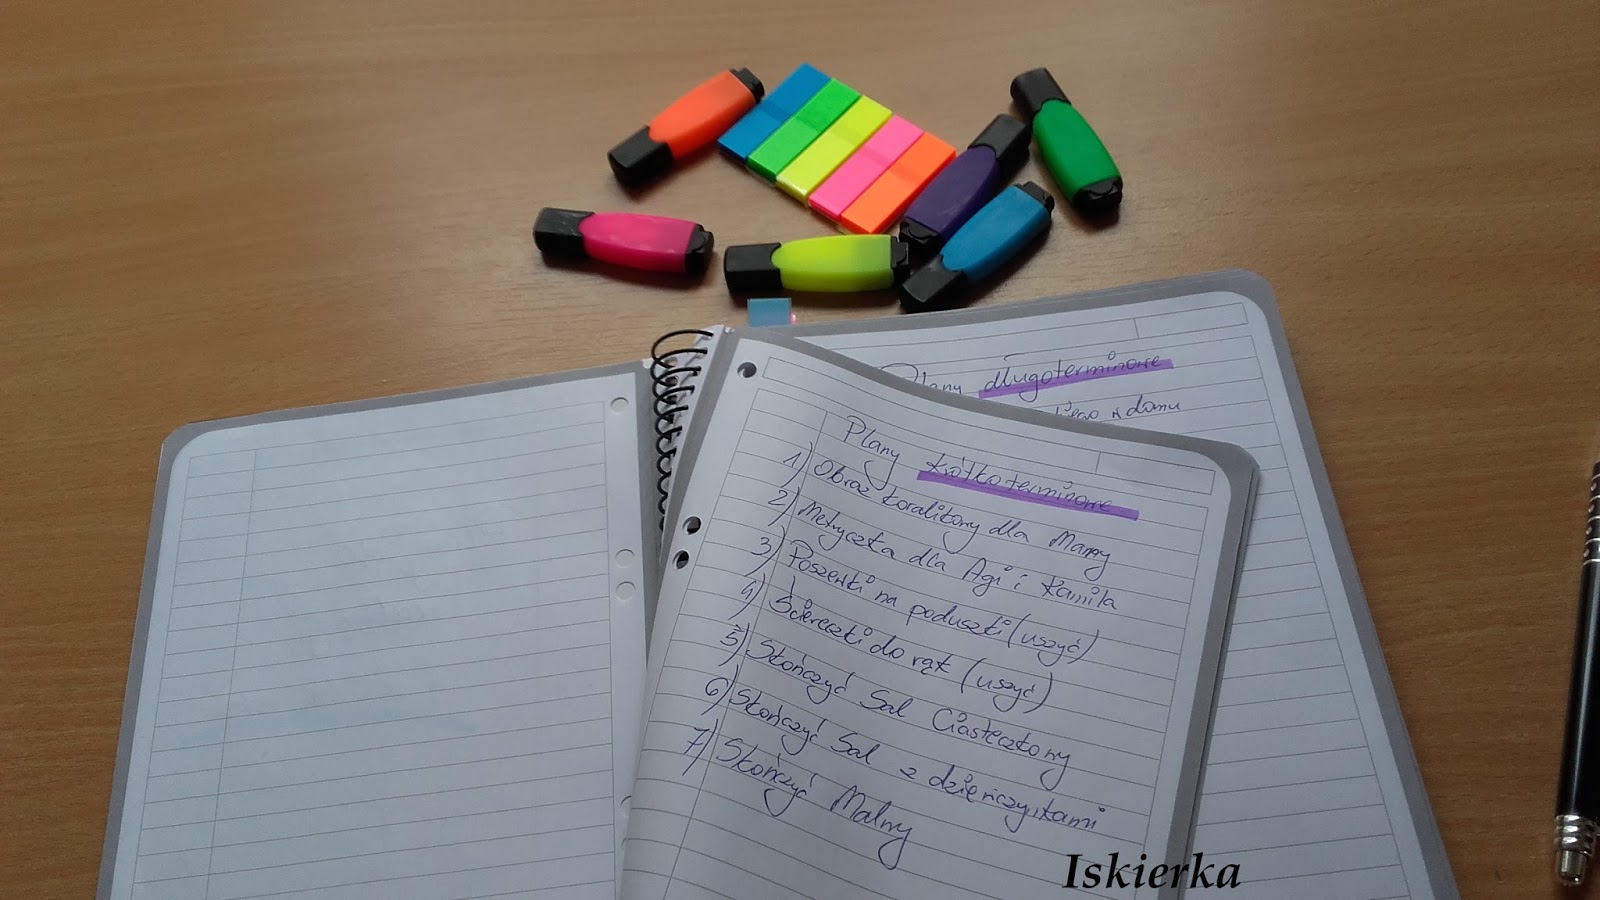 Plany długoterminowe
w domu
Plany krótkoterminowe
1) Obraz koralikowy dla Mamy
2) Metryczka dla Agi i Kamila
3) Poszewki na poduszki (uszyć)
4) Ściereczki do rąk (uszyć)
5) Skończyć Sal Ciasteczkowy
6) Skończyć Sal z dziewczynkami
7) Skończyć Malwy
Iskierka